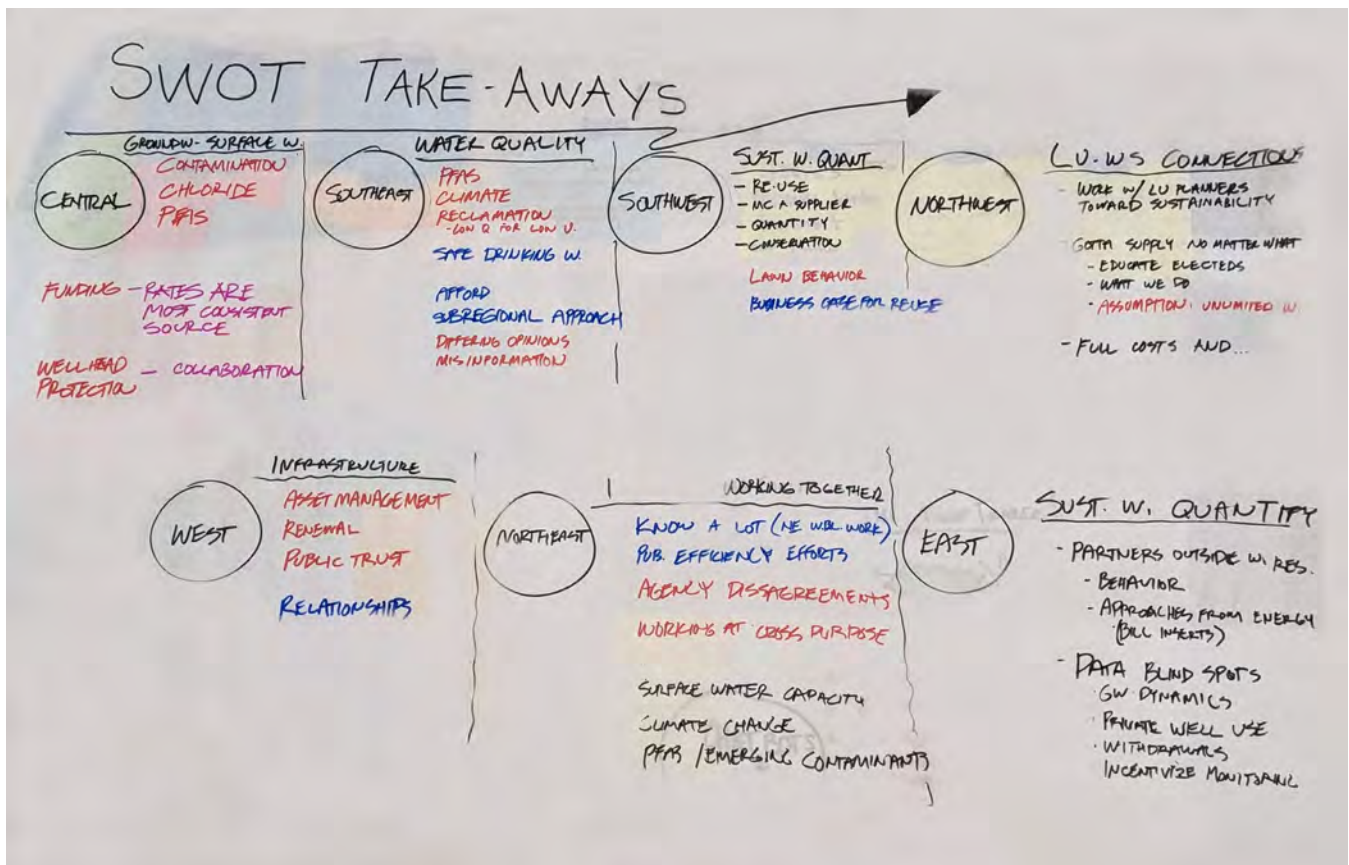 SWOT TAKE-AWAYS
CENTRAL
GROUNDW-SURFACE W.
CONTAMINATION
CHLORIDE
PFAS
FUNDING - RATES ARE
MOST CONSISTENT
SOURCE
WELLHEAD - COLLABORATION
PROTECTION
SOUTHEAST
WATER QUALITY
PFAS
CLIMATE
RECLAMATION
- LOW Q FOR LOW U.
SAFE DRINKING W.
AFFORD
SUBREGIONAL APPROACH
DIFFERING OPINIONS
MISINFORMATION
SOUTHWEST
SUST. W. QUANT
- RE-USE
- MC A SUPPLIER
- QUANTITY
- CONSERVATION
LAWN BEHAVIOR
BUSINESS CASE FOR REUSE
NORTHWEST
LU-WS CONNECTIONS
- WORK W/ LU PLANNERS
TOWARD SUSTAINABILITY
- GOTTA SUPPLY NO MATTER WHAT
- EDUCATE ELECTEDS
- WHAT WE DO
- ASSUMPTION: UNLIMITED W
- FULL COSTS AND...
WEST
INFRASTRUCTURE
ASSET MANAGEMENT
RENEWAL
PUBLIC TRUST
RELATIONSHIPS
NORTHEAST
WORKING TOGETHER
KNOW A LOT (NE WBL WORK)
PUB. EFFICIENCY EFFORTS
AGENCY DISSAGREEMENTS
WORKING AT CROSS PURPOSE
SURFACE WATER CAPACITY
CLIMATE CHANGE
PFAS / EMERGING CONTAMINANTS
EAST
SUST. W. QUANTITY
- PARTNERS OUTSIDE W. RES.
- BEHAVIOR
- APPROACHES FROM ENERGY
(BILL INSERTS)
- DATA BLIND SPOTS
· GW DYNAMICS
· PRIVATE WELL USE
· WITHDRAWALS
INCENTIVIZE MONITORING